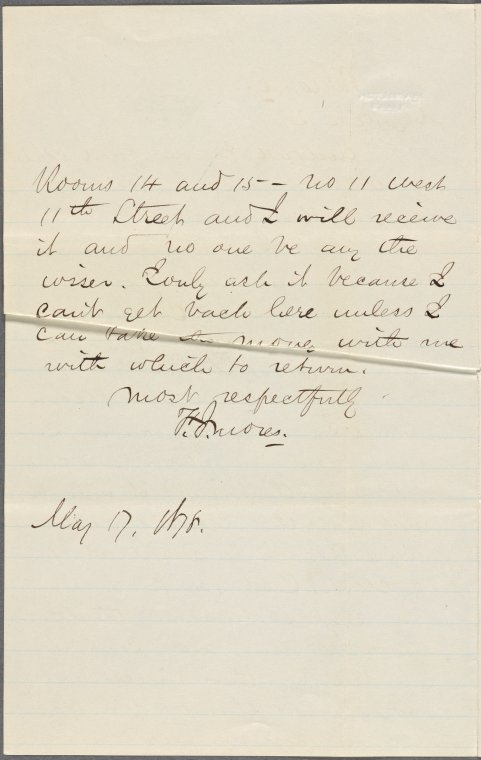 Rooms 14 and 15 – No 11 west
11th Street and I will receive
it and no one be any the
wiser. I only ask it because I
can't get back here unless I
can take the money with me
with which to return.
Most respectfully
Mores.
May 17, 1878.